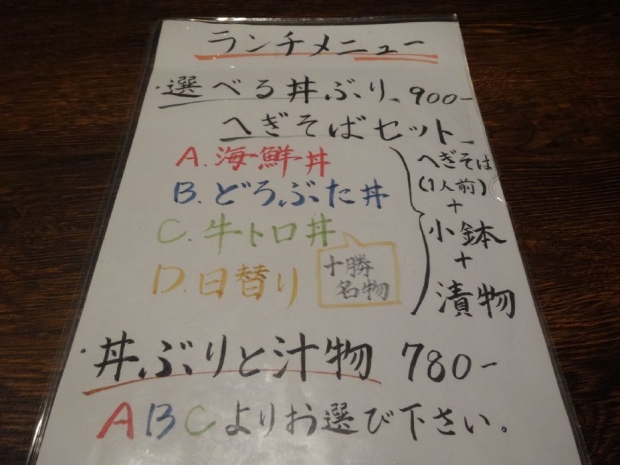 ランチメニュー
・選べる丼ぶり、900-
へぎそばセット
A.海鮮丼
B.どろぶた丼
C.牛トロ丼
D.日替り
十勝
名物
へぎそば
(1人前)
+
小鉢
+
漬物
・丼ぶりと汁物 780-
ABCよりお選び下さい。